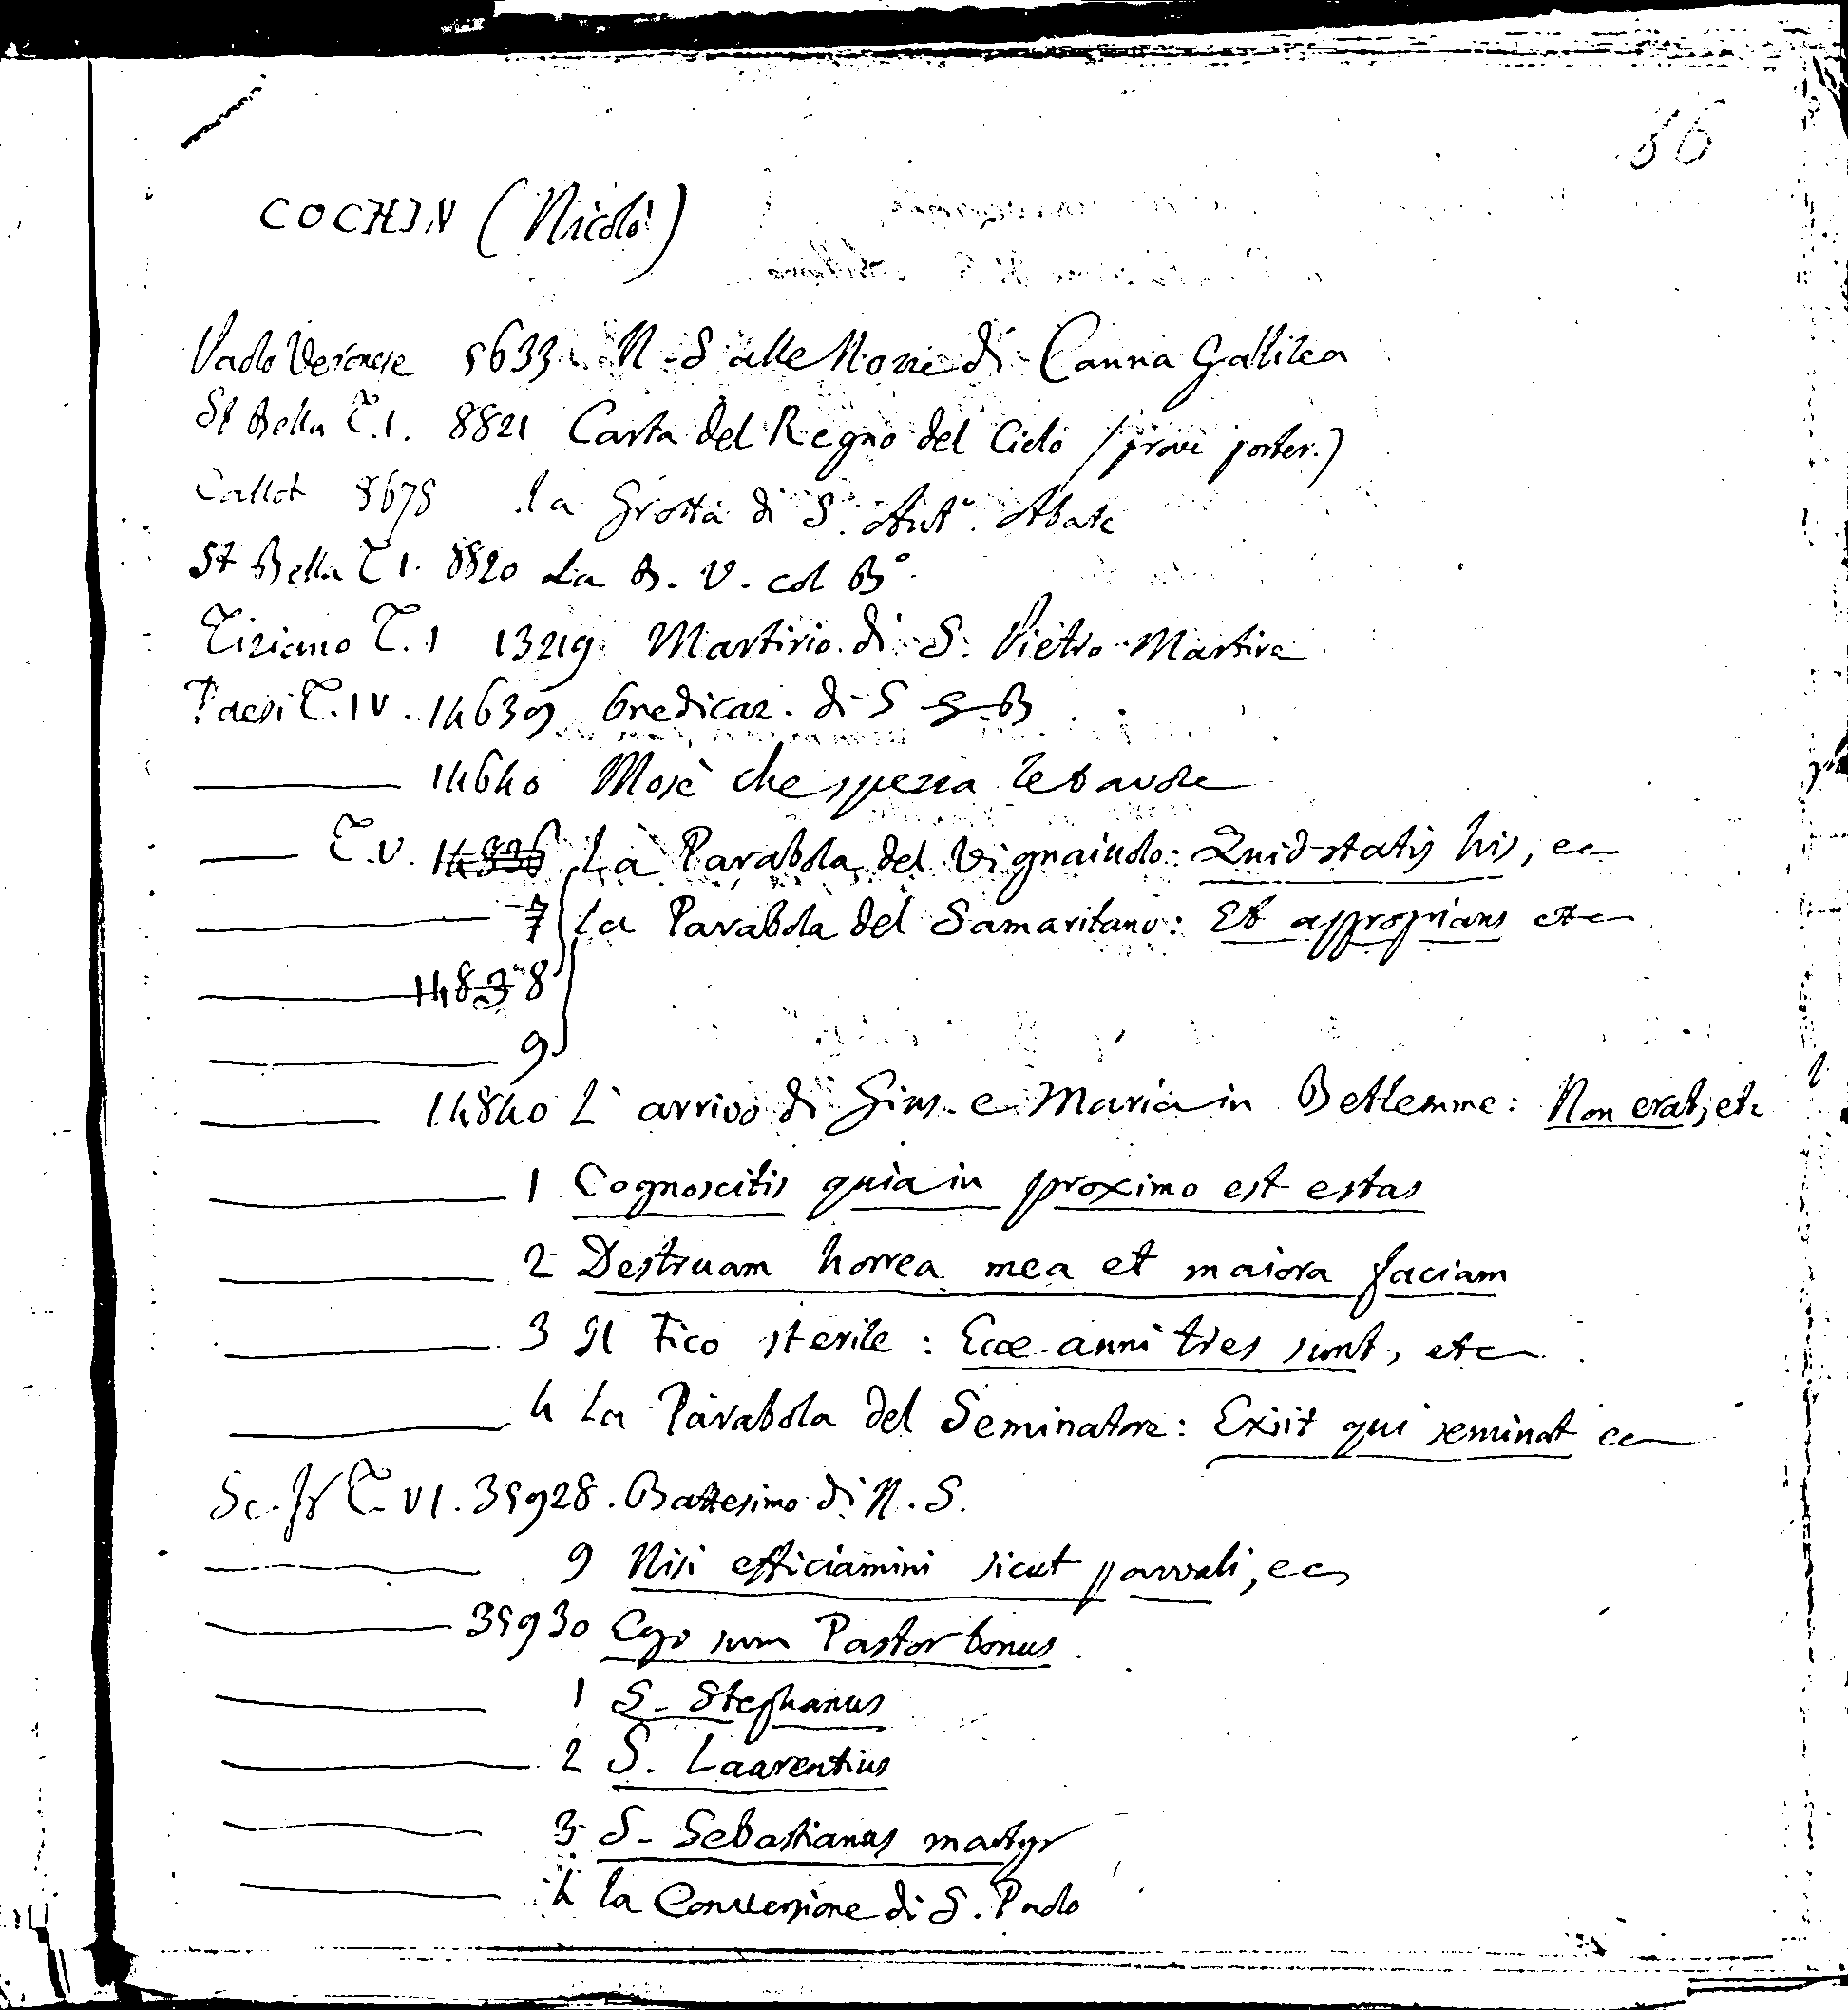 86
COCHIN (Nicolò)
Paolo Veronese 5633. N. S alle Nozze di Canna Gallilea
St Bella T.1. 8821 Carta del Regno del Cielo (prove poster.)
Callot 8675 la Grotta di S. Antº. Abate
St Bella T 1. 8820 La B. V. col Bº
Tiziano T. 1 13219 Martirio di S. Pietro Martire
Paesi T. IV. 14639 Predicaz. di S G. B
14640 Mosè che spezza le tavole
T. V. 14836 La Parabola del Vignaiuolo: Quid statis his, ec
7 La Parabola del Samaritano: Et appropians etc
14838
9
14840 L'arrivo di Gius. e Maria in Betlemme: Non erat, etc
1 Cognoscitis quia in proximo est estas
2 Destruam horrea mea et maiora faciam
3 Il Fico sterile: Ecce anni tres sunt, etc
4 La Parabola del Seminatore: Exiit qui seminat ec
Sc. Fr T. VI. 35928. Battesimo di N. S.
9 Nisi efficiamini sicut parvuli, ec
35930 Ego sum Pastor bonus.
1 S. Stephanus
2 S. Laurentius
3 S. Sebastianus martyr
4 la Conversione di S. Paolo